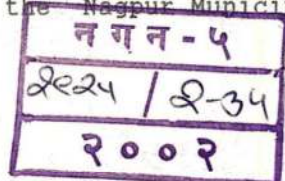 the Nagpur Munici
नगन - ५
२९२५ / २-३५
२००२